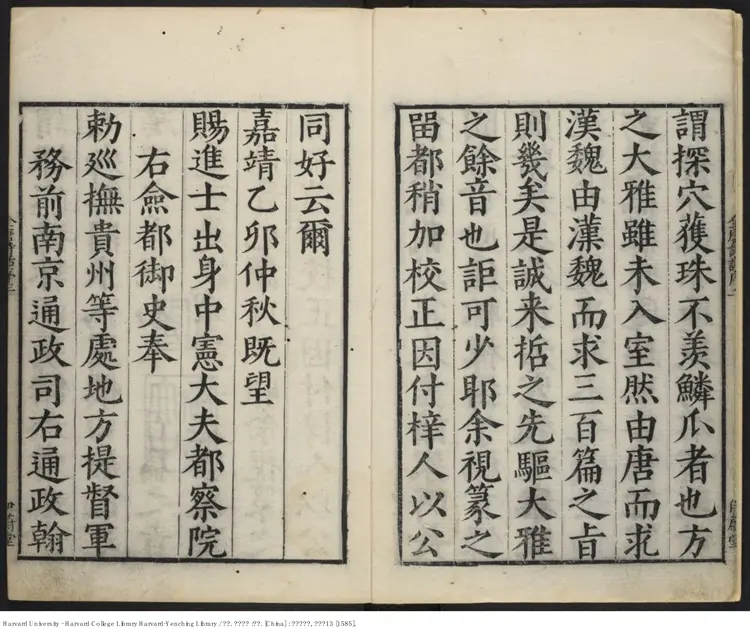 謂探穴𫉬珠不羨鱗爪者也方
之大雅雖未入室然由唐而求
漢魏由漢魏而求三百篇之旨
則幾矣是誠来㧱之先驅大雅
之餘音也詎可少耶余視篆之
畱都稍加校正因付梓人以公
同好云爾
嘉靖乙卯仲秋既望
賜進士出身中憲大夫都察院
右僉都御史奉
勅廵撫貴州等處地方提督軍
務前南京通政司右通政翰
Harvard University - Harvard College Library Harvard-Yenching Library / ??. ???? : ??. [China] : ?????, ???13 [1585].